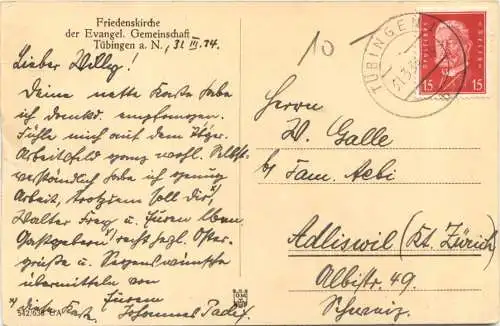 Friedenskirche
der Evangel. Gemeinschaft
Tübingen a. N., 31 III. 34.
Lieber Willy!
Deine nette Karte habe
ich dankd. empfangen.
Fühle mich auf dem
Arbeitsfeld ganz wohl. Selbst-
verständlich habe ich genug
Arbeit, trotzdem soll dir,
Walter Frey u. Euren lben
Gastgebern recht segl. Oster-
grüße u. Segenswünsche
übermitteln von
Eurem
diese Karte
Johannes
542/638 GA
10
TÜBINGEN
31.3.34
DEUTSCHES REICH
15 15
Herrn
W. Galle
b/ Fam. Aebi
Adliswil (Kt. Zürich)
Albistr 49.
Schweiz.